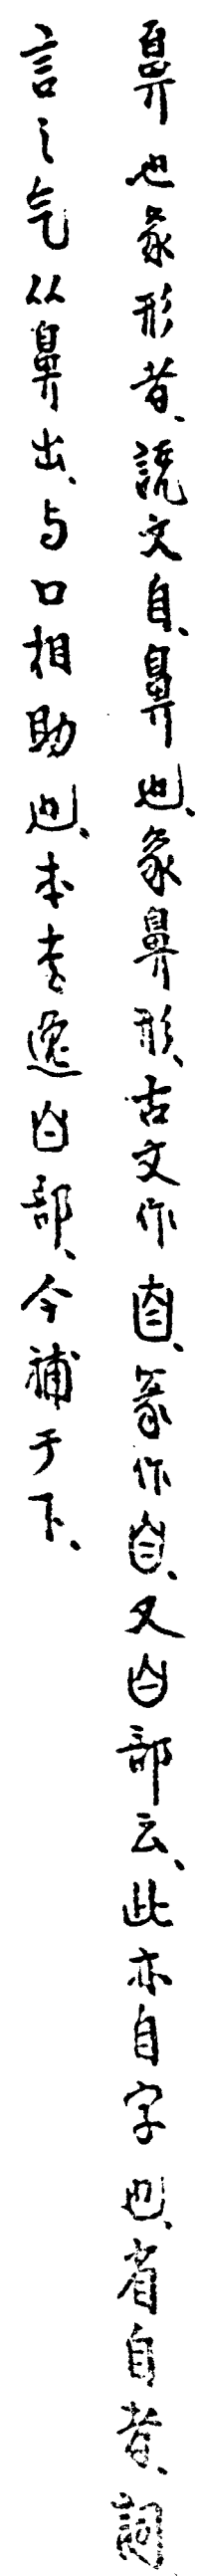 鼻也象形者、說文自、鼻也、象鼻形、古文作𦣹、篆作自、又白部云、此亦自字也、省自者、詞
言之气从鼻出、与口相助也、本書逸白部、今補于下、